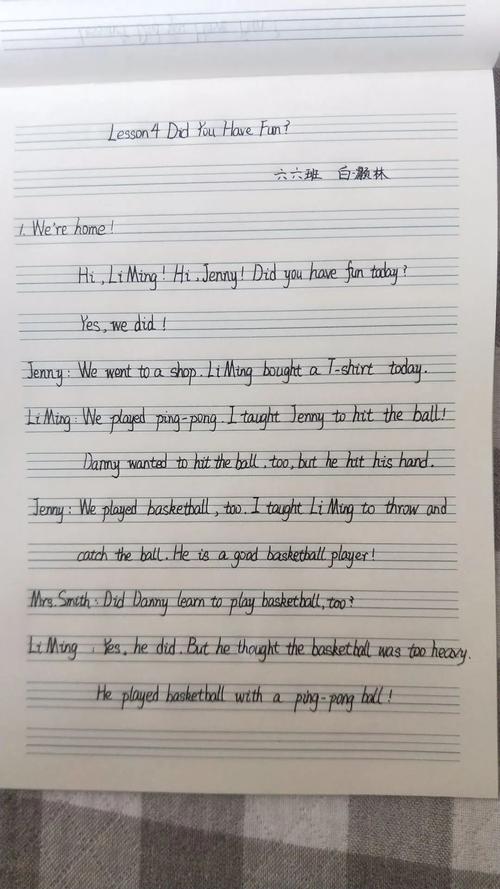 Lesson 4 Did You Have Fun?
六六班 白灏林
1. We're home!
Hi, Li Ming! Hi, Jenny! Did you have fun today?
Yes, we did!
Jenny: We went to a shop. Li Ming bought a T-shirt today.
Li Ming: We played ping-pong. I taught Jenny to hit the ball!
Danny wanted to hit the ball, too, but he hit his hand.
Jenny: We played basketball, too. I taught Li Ming to throw and
catch the ball. He is a good basketball player!
Mrs. Smith: Did Danny learn to play basketball, too?
Li Ming: Yes, he did. But he thought the basketball was too heavy.
He played basketball with a ping-pong ball!